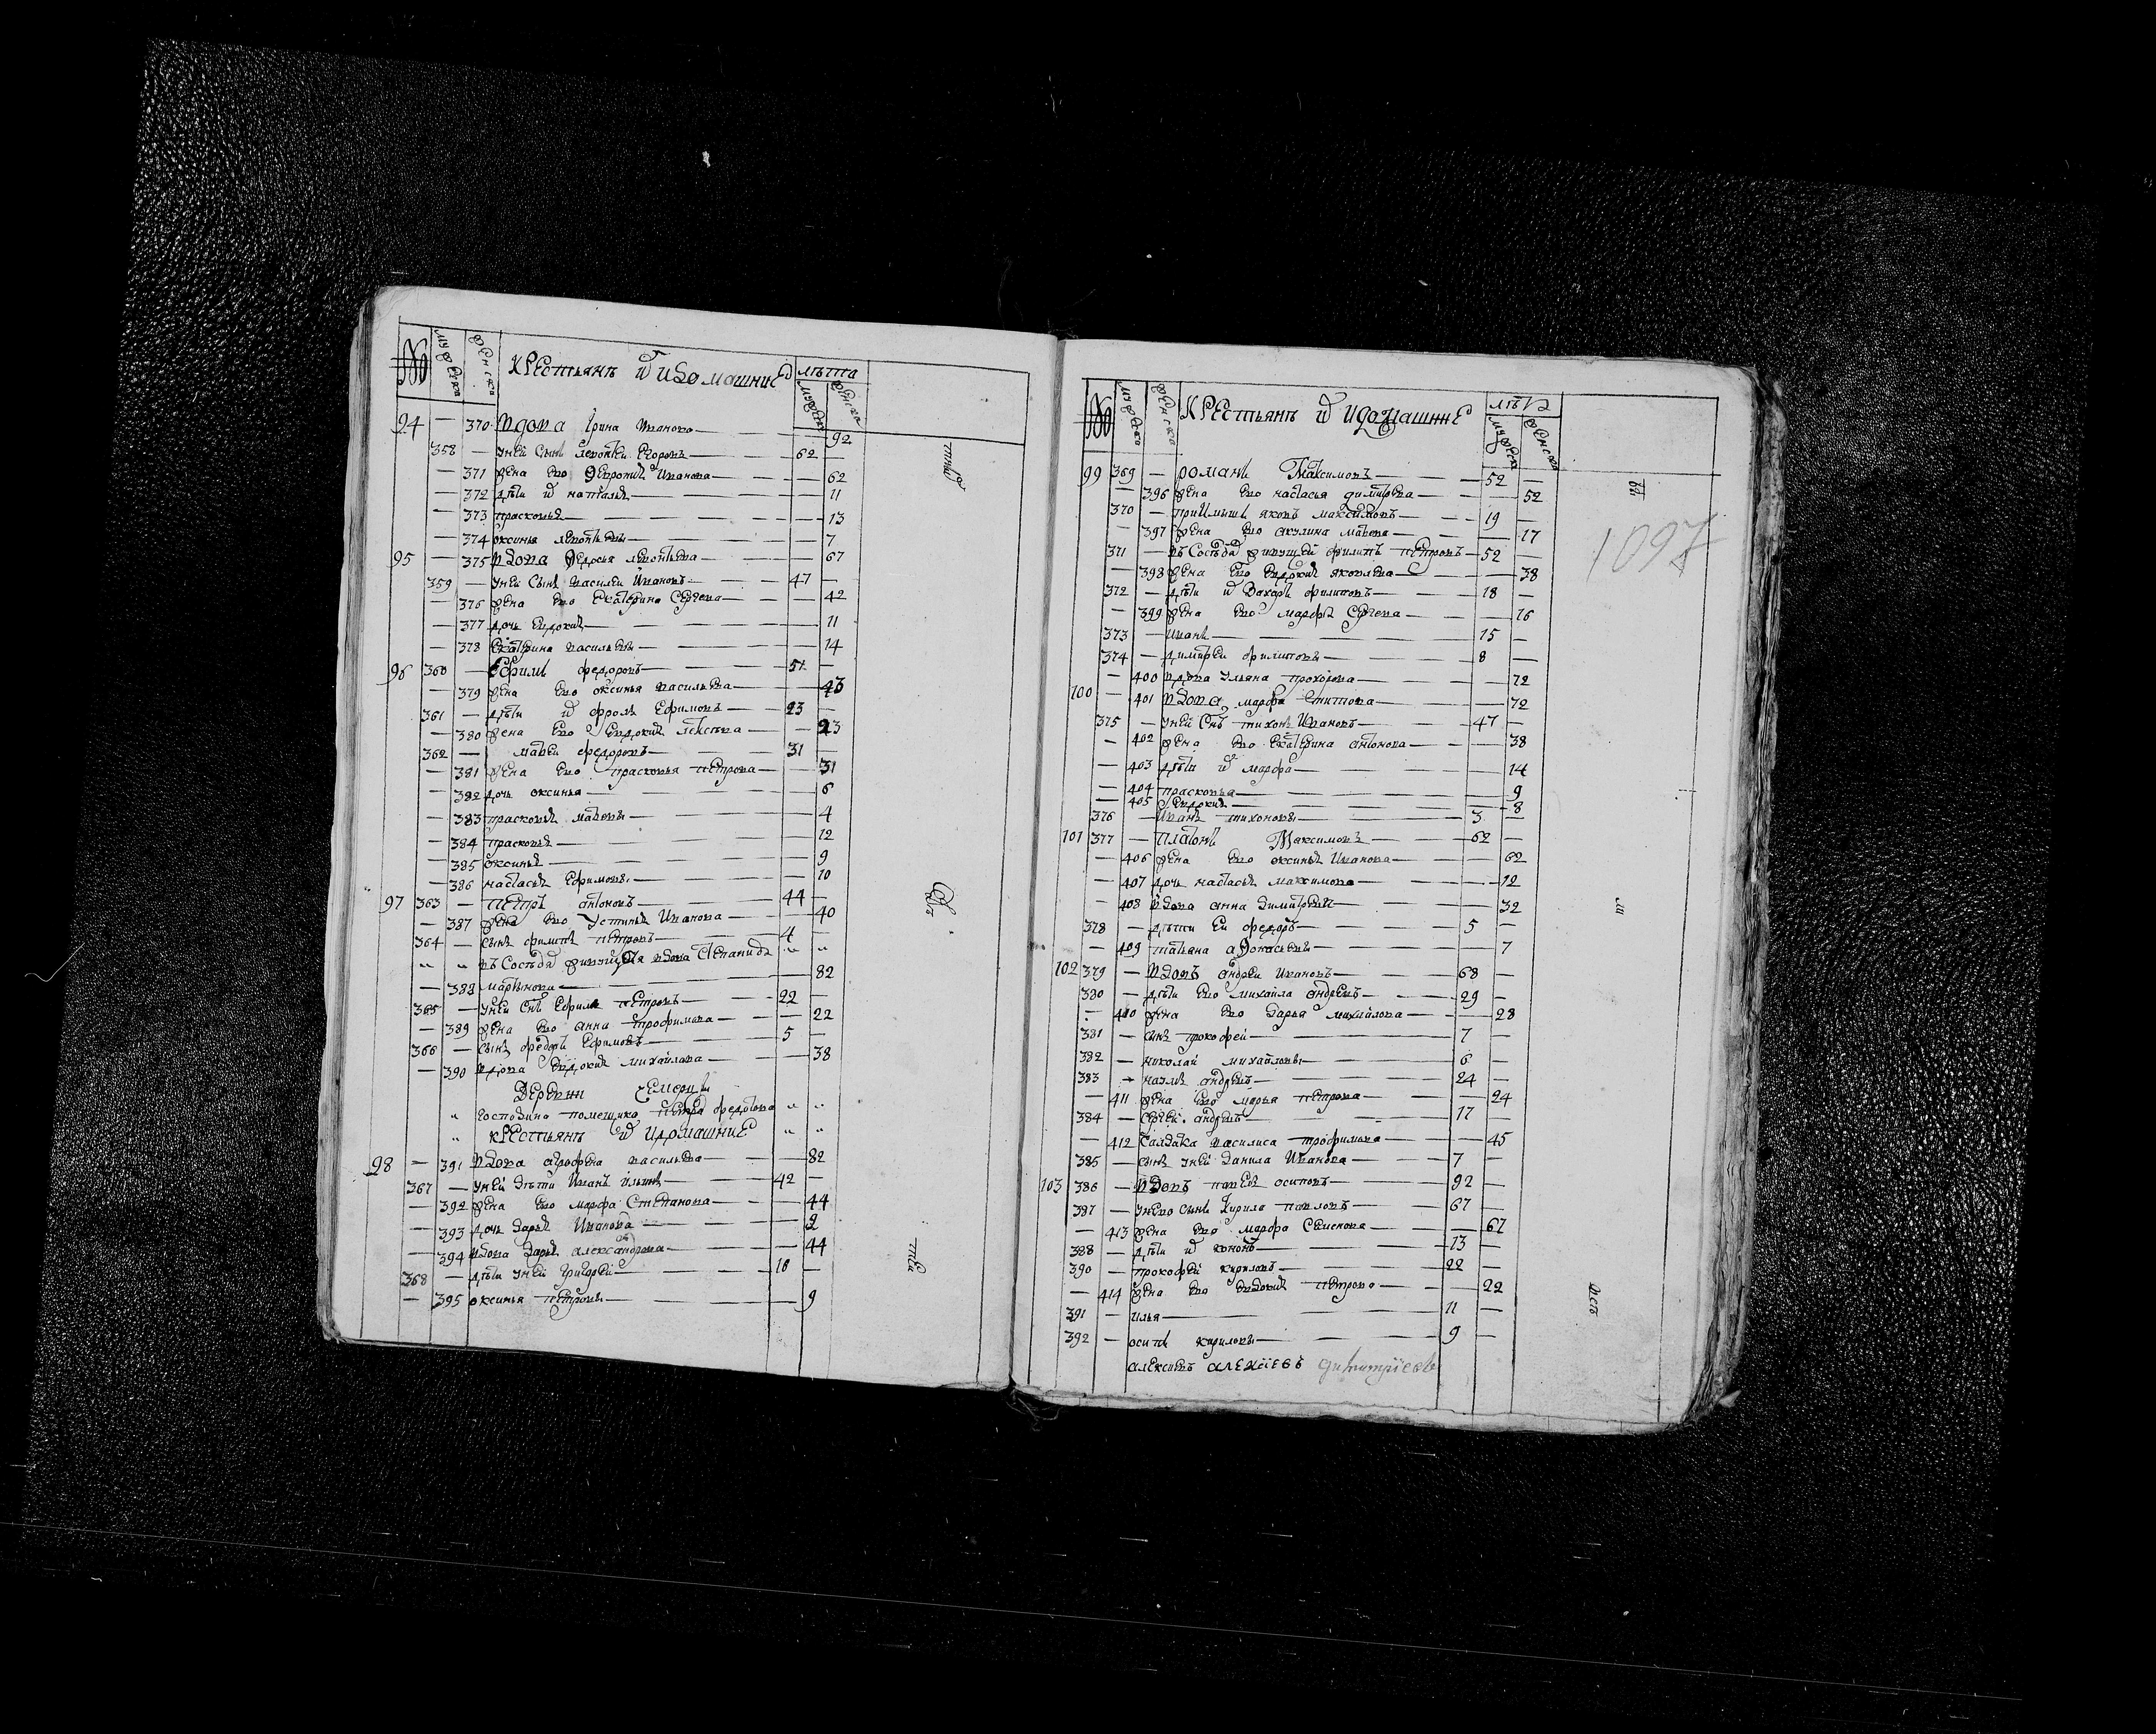 № мужеска женска крестьянъ и домашние лѣта мужеска женска
94 — 370 вдова Ирина Иванова — 92
358 — у ней сынъ Леонтей Егоровъ 62 —
— 371 жена его Февронiя Иванова — 62
— 372 дѣти их наталья — 11
— 373 прасковья — 13
— 374 оксинья леонтьевы — 7
95 — 375 вдова Федосья леонтьева — 67
359 — у ней сынъ василей Ивановъ 47 —
— 376 жена его Екатерина Сергеева — 42
— 377 дочь Евдокия — 11
— 378 Екатерина васильевы — 14
96 360 — Ефимъ федоровъ 51 —
— 379 жена его оксинья васильева — 43
361 — дѣти их фролъ Ефимовъ 23 —
— 380 жена его Евдокия — 23
362 — матвей федоровъ 31 —
— 381 жена его прасковья петрова — 31
— 382 дочь оксинья — 6
— 383 прасковья матвевы — 4
— 384 прасковья — 12
— 385 оксинья — 9
— 386 настасья Ефимовы — 10
97 363 — петръ антоновъ 44 —
— 387 жена его Устинья Иванова — 40
364 — сынъ филипъ петровъ 4 —
„ „ въ Соседах живущая вдова Степанида „ „
— 388 мартынова — 82
365 — у ней снъ Ефимъ петровъ 22 —
— 389 жена его анна трофимова — 22
366 — сынъ федоръ Ефимовъ 5 —
— 390 вдова Евдокия михайлова — 38
Деревни
„ Господина помещика петра федотова „ „
„ крестьянъ и Идомашние „ „
98 — 391 вдова агрофена васильева — 82
367 — у ней дѣти Иванъ ильинъ 42 —
— 392 жена его марфа Степанова — 44
— 393 дочь дарья Иванова — 2
— 394 вдова дарья александрова — 44
368 — дѣти у ней Григорей 10 —
— 395 оксинья петровы — 9
№ мужеска женска Крестьянъ и Идомашние лѣта мужеска женска
1097
99 369 — романъ Максимовъ 52 —
— 396 жена его настасья димитрева — 52
370 — приимышъ яковъ максимовъ 19 —
— 397 жена его акулина матвева — 17
371 — въ Соседах живущей филипъ петровъ 52 —
— 398 жена его Евдокия яковлева — 38
372 — дѣти их Захаръ филиповъ 18 —
— 399 жена его марфа Сергеева — 16
373 — иванъ 15 —
374 — димитрей филиповы 8 —
— 400 вдова Ульяна прохорова — 72
100 — 401 вдова марфа титова — 72
375 — у ней снъ тихонъ Ивановъ 47 —
— 402 жена его Екатерина антонова — 38
— 403 дѣти их марфа — 14
— 404 прасковья — 9
— 405 Евдокия — 8
376 — Иванъ тихоновы 3 —
101 377 — платонъ Максимовъ 62 —
— 406 жена его оксинья Иванова — 62
— 407 дочь настасья максимова — 12
— 408 вдова анна димитрева — 32
378 — дѣти ей федоръ 5 —
— 409 татьяна афонасьевы — 7
102 379 — вдовъ андрей ивановъ 68 —
380 — дѣти его михайла андревъ 29 —
— 410 жена его дарья михайлова — 28
381 — сынъ прокофей 7 —
382 — николай михайловы 6 —
383 — наумъ андревъ 24 —
— 411 жена его марья петрова — 24
384 — Сергей андревъ 17 —
— 412 Салдатка василиса трофимова — 45
385 — сынъ у ней данила Иванова 7 —
103 386 — вдовъ павелъ осиповъ 92 —
387 — у него сынъ Кирила павловъ 67 —
— 413 жена его марфа Семенова — 67
388 — дѣти их кононъ 13 —
390 — прокофей кириловъ 22 —
— 414 жена его евдокия петрова — 22
391 — илья 11 —
392 — осипъ кириловы 9 —
алексиевъ алексiевъ димитрiевъ